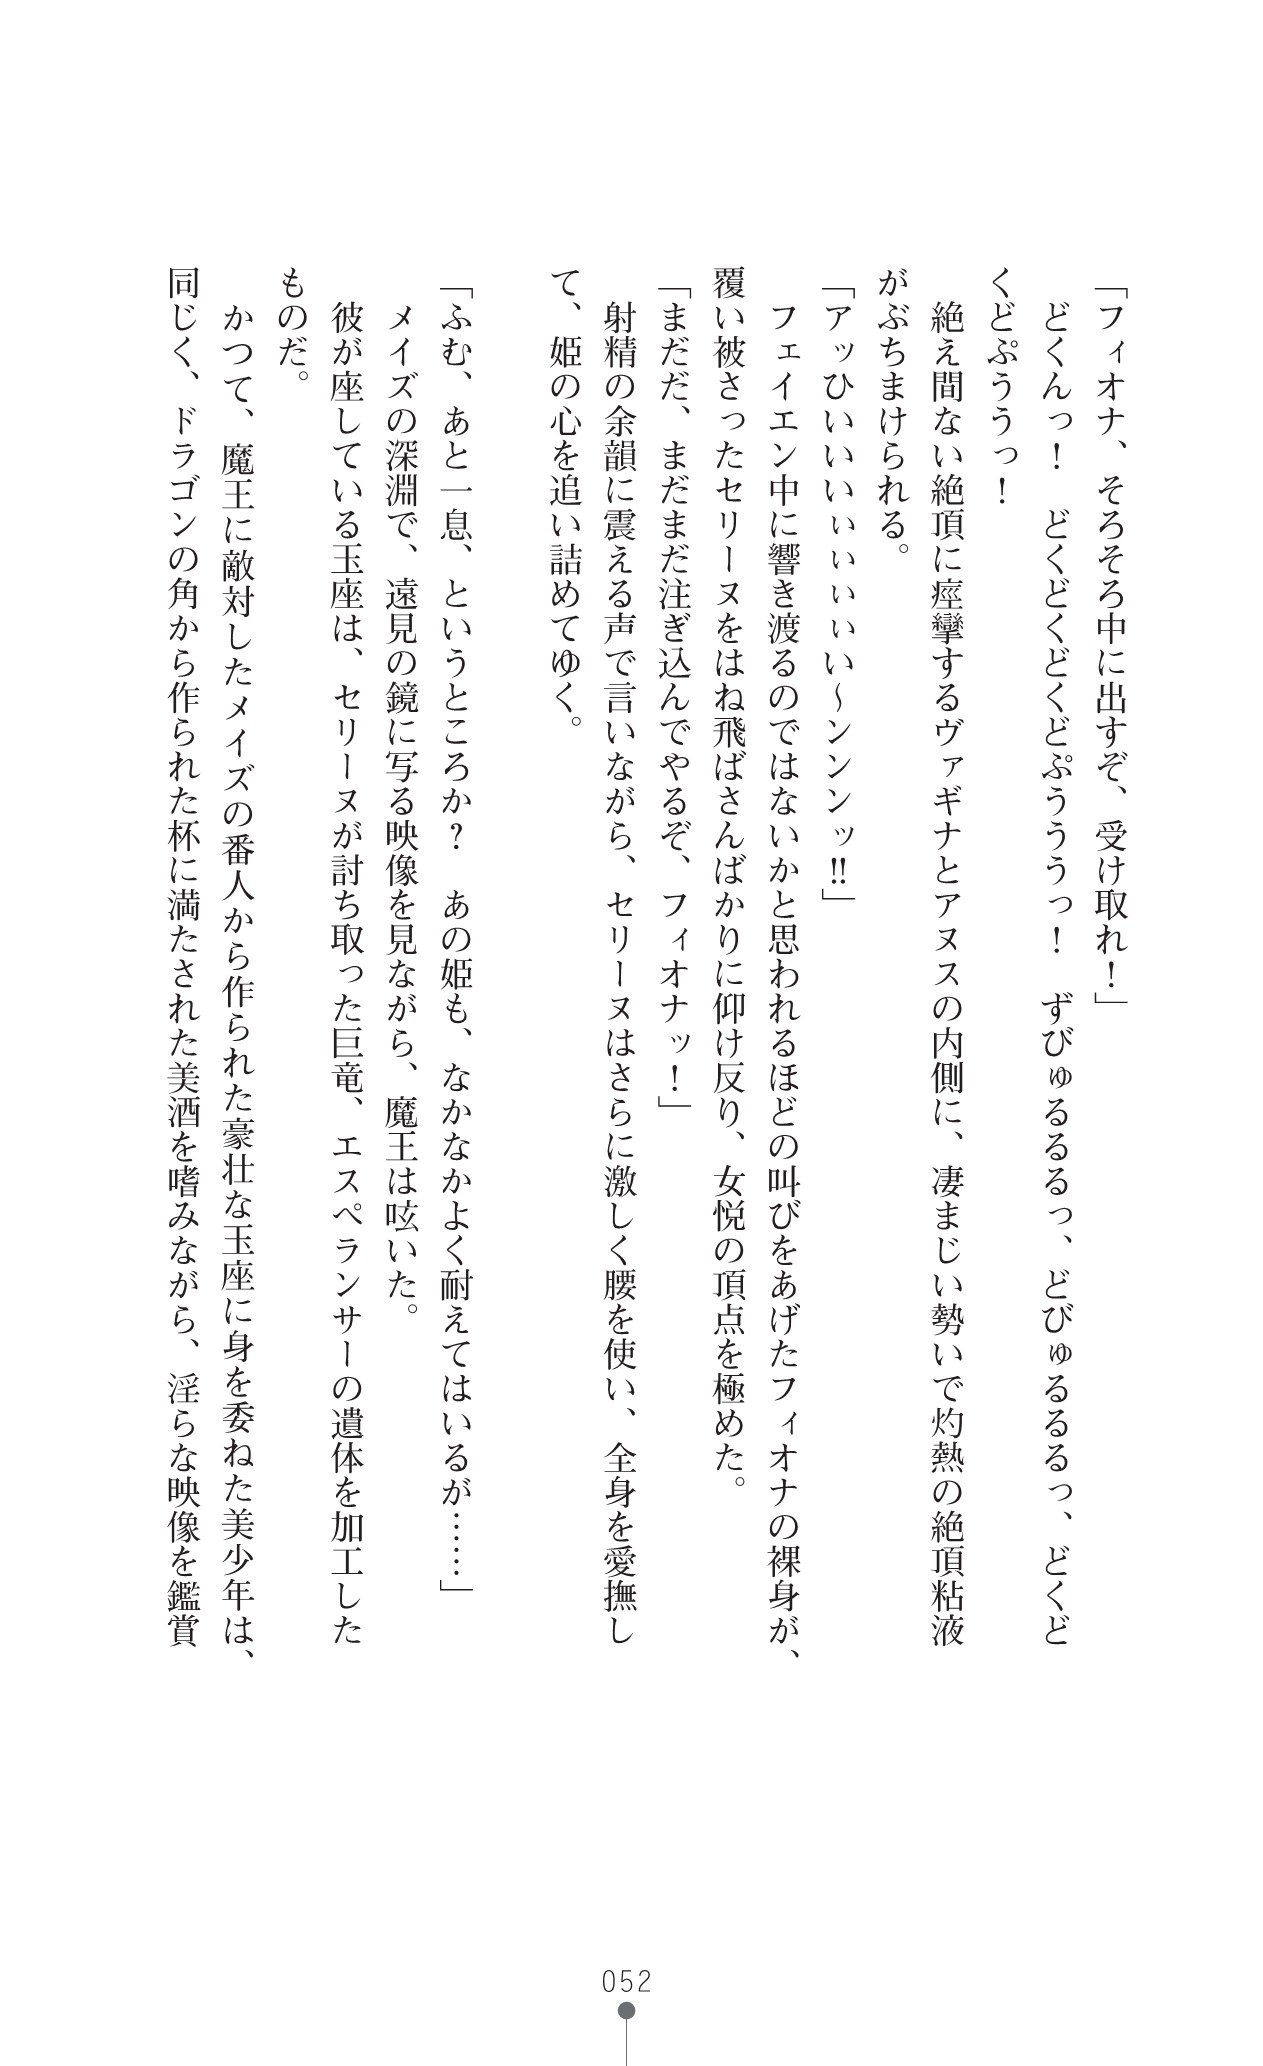 「フィオナ、そろそろ中に出すぞ、受け取れ！」
どくんっ！　どくどくどくどぷうううっ！　ずびゅるるるっ、どびゅるるるっ、どくど
くどぷううっ！
絶え間ない絶頂に痙攣するヴァギナとアヌスの内側に、凄まじい勢いで灼熱の絶頂粘液
がぶちまけられる。
「アッひいいいぃぃぃぃい～ンンンッ!!」
フェイエン中に響き渡るのではないかと思われるほどの叫びをあげたフィオナの裸身が、
覆い被さったセリーヌをはね飛ばさんばかりに仰け反り、女悦の頂点を極めた。
「まだだ、まだまだ注ぎ込んでやるぞ、フィオナッ！」
射精の余韻に震える声で言いながら、セリーヌはさらに激しく腰を使い、全身を愛撫し
て、姫の心を追い詰めてゆく。
「ふむ、あと一息、というところか？　あの姫も、なかなかよく耐えてはいるが……」
メイズの深淵で、遠見の鏡に写る映像を見ながら、魔王は呟いた。
彼が座している玉座は、セリーヌが討ち取った巨竜、エスペランサーの遺体を加工した
ものだ。
かつて、魔王に敵対したメイズの番人から作られた豪壮な玉座に身を委ねた美少年は、
同じく、ドラゴンの角から作られた杯に満たされた美酒を嗜みながら、淫らな映像を鑑賞
052